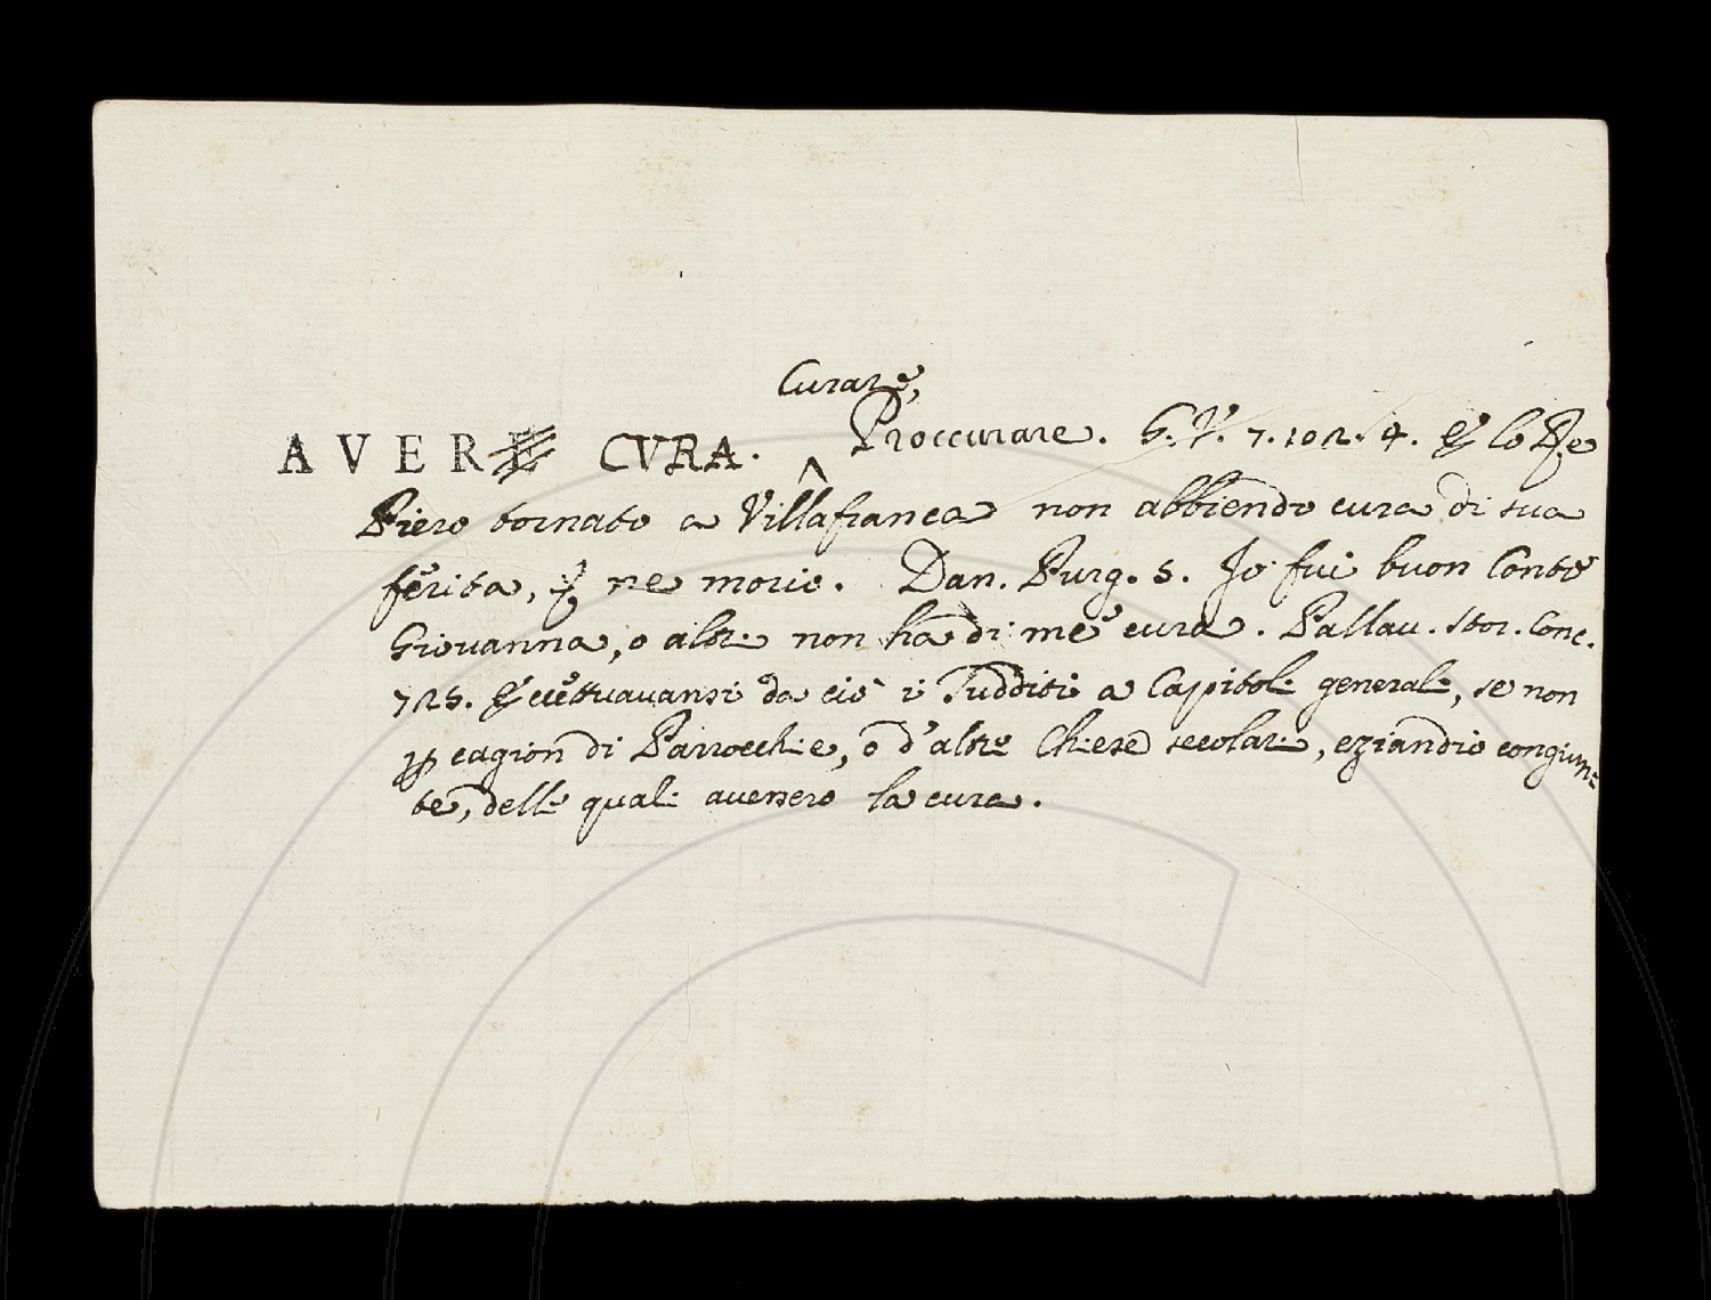 Curare,
AVERE CVRA. Proccurare. G. V. 7. 102. 4. E lo Re
Piero tornato a Villafranca non abbiendo cura di sua
ferita, ne morio. Dan. Purg. 5. Io fui buon Conte
Giovanna, o altri non ha di me cura. Pallau. Stor. Conc.
725. Eccettuavansi da ciò i Sudditi a Capitoli generali, se non
cagion di Parrocchie, ò d'altre Chiese secolari, eziandio congiun=
te, delle quali avessero la cura.